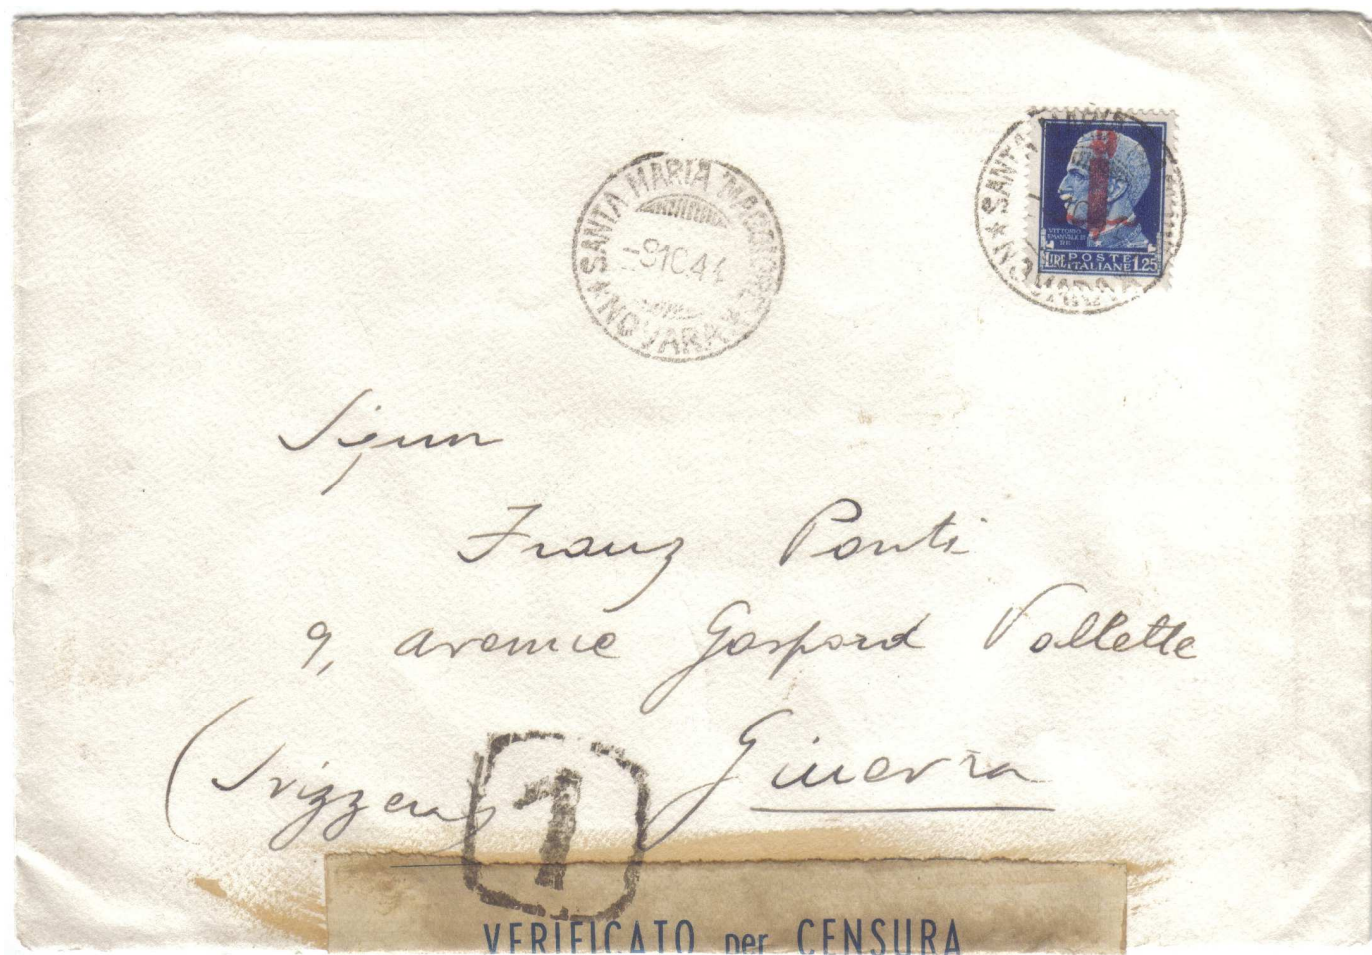 SANTA MARIA MAGGIORE
-9 10.44
* NOVARA *
SANTA MARIA
* NOVARA
VITTORIO
EMANUELE III
RE
POSTE
LIRE ITALIANE 1.25
Signor
Franz Ponti
9, avenue Gaspard Vallette
Ginevra
(Svizzera)
1
VERIFICATO per CENSURA